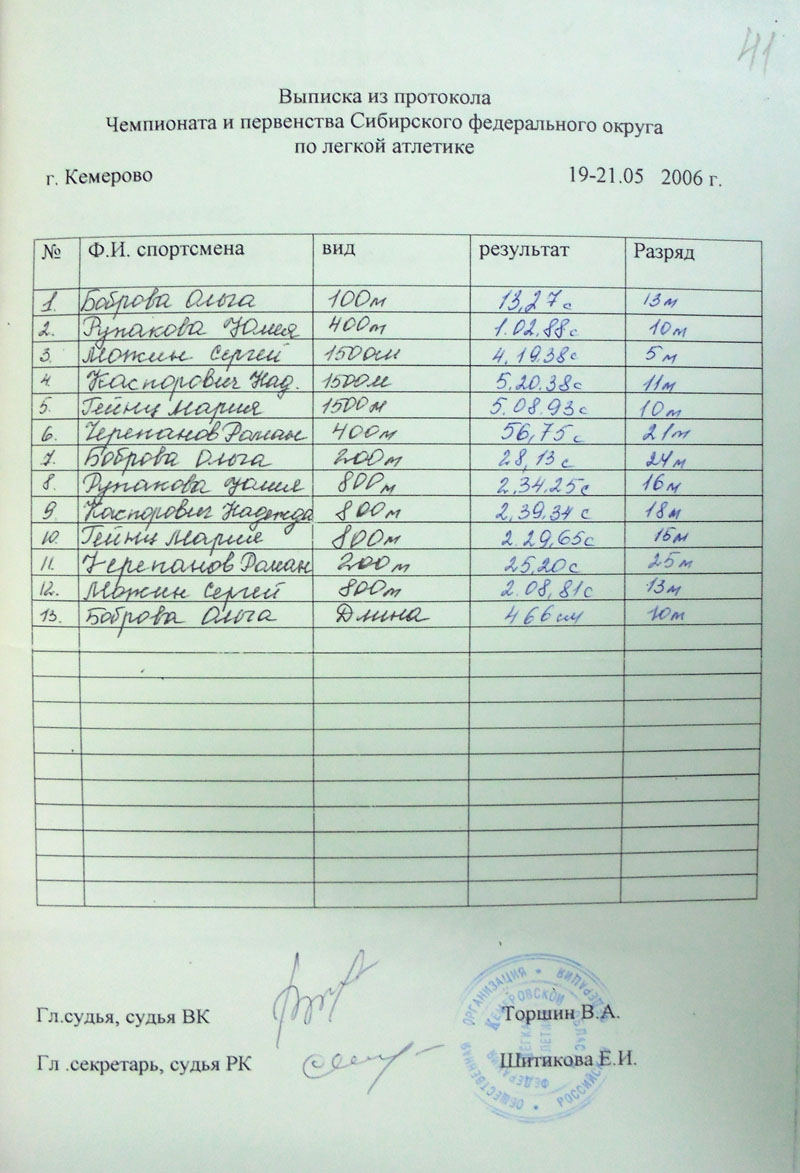 41
Выписка из протокола
Чемпионата и первенства Сибирского федерального округа
по легкой атлетике
г. Кемерово 19-21.05 2006 г.
№ Ф.И. спортсмена вид результат Разряд
1. Боброва Ольга 100м 13,27с 13м
2. Рупакова Юлия 400м 1.02.88с 10м
3. Можин Сергей 1500м 4,19.38с 5м
4. Каспорович Над. 1500м 5.20.38с 11м
5. Гейни Мария 1500м 5.08.93с 10м
6. Черепанов Роман 400м 56,75с 21м
7. Боброва Ольга 200м 28,13с 24м
8. Рупакова Юлия 800м 2,34.25с 16м
9. Каспорович Надежда 800м 2,39.34с 18м
10. Гейни Мария 800м 2.29,65с 15м
11. Черепанов Роман 200м 25,20с 25м
12. Можин Сергей 800м 2.08,81с 13м
13. Боброва Ольга Длина 466см 10м
Гл.судья, судья ВК Торшин В.А.
Гл .секретарь, судья РК Шитикова Е.И.
ОБЩЕСТВЕННАЯ ОРГАНИЗАЦИЯ
КЕМЕРОВСКОЙ